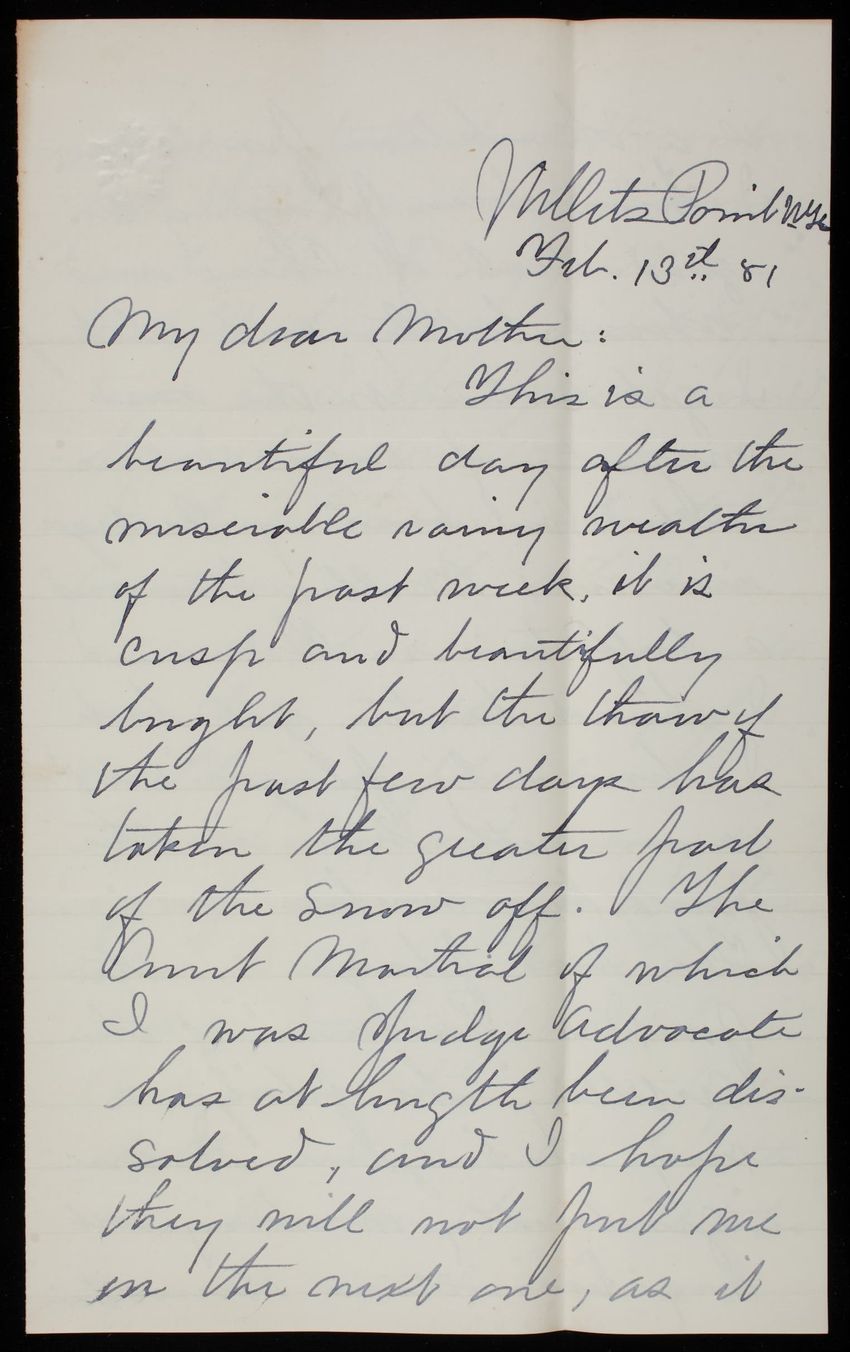 Willets Point N.Y.
Feb. 13th 81
My dear Mother:
This is a
beautiful day after the
miserable rainy weather
of the past week, it is
crisp and beautifully
bright, but the thaw of
the past few days has
taken the greater part
of the snow off. The
Court Martial of which
I was Judge Advocate
has at length been dis-
solved, and I hope
they will not put me
on the next one, as it